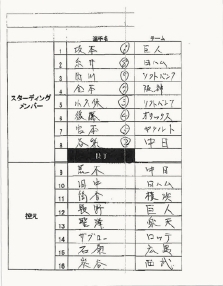 選手名 チーム
スターティング
メンバー
1 坂本 ⑥ 巨人
2 糸井 ⑧ 日ハム
3 内川 ソフトバンク
4 金本 ⑦ 阪神
5 小久保 ③ ソフトバンク
6 後藤 ④ オリックス
7 宮本 ⑤ ヤクルト
8 谷繁 ② 中日
控え
9 荒木 中日
10 田中 日ハム
11 村田 横浜
12 長野 巨人
13 聖澤 楽天
14 サブロー ロッテ
15 石原 広島
16 炭谷 西武